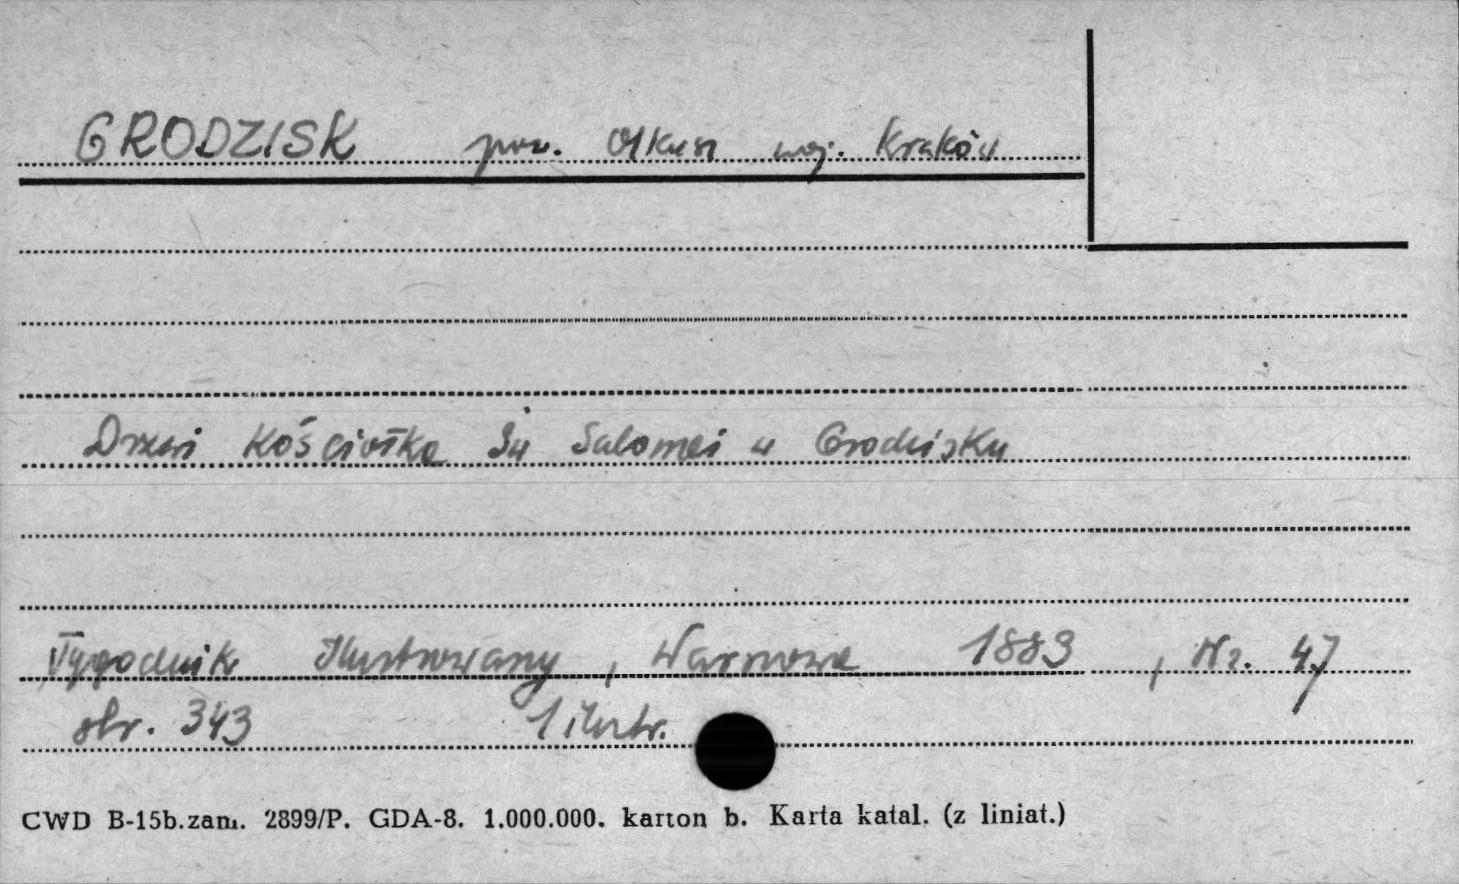 GRODZISK pow. Olkusz woj. Kraków
Drzwi Kościołka Św Salomei w Grodzisku
Tygodnik Ilustrowany, Warszawa 1883, Nr. 47
str. 343 1 ilustr.
CWD B-15b.zam. 2899/P. GDA-8. 1.000.000. karton b. Karta katal. (z liniat.)